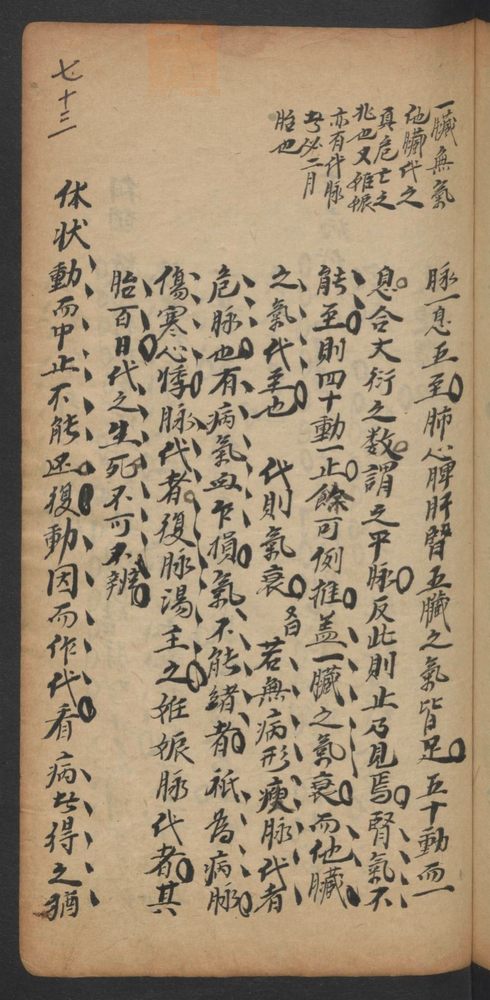 一臟無氣
他臟代之
真危亡之
兆也又妊娠
亦有代脉
者必二月
胎也
脉一息五至肺心脾肝腎五臟之氣皆足五十動而一
息合大衍之数謂之平脉反此則止乃見焉腎氣不
能至則四十動一止餘可例推盖一臟之氣衰而他臟
之氣代至也 代則氣衰 又曰 若無病形瘦脉代者
危脉也有病氣血乍損氣不能緒者祇為病脉
傷寒心悸脉代者復脉湯主之妊娠脉代者其
胎百日代之生死不可不辨
体状 動而中止不能还復動因而作代看病者得之猶
七十三